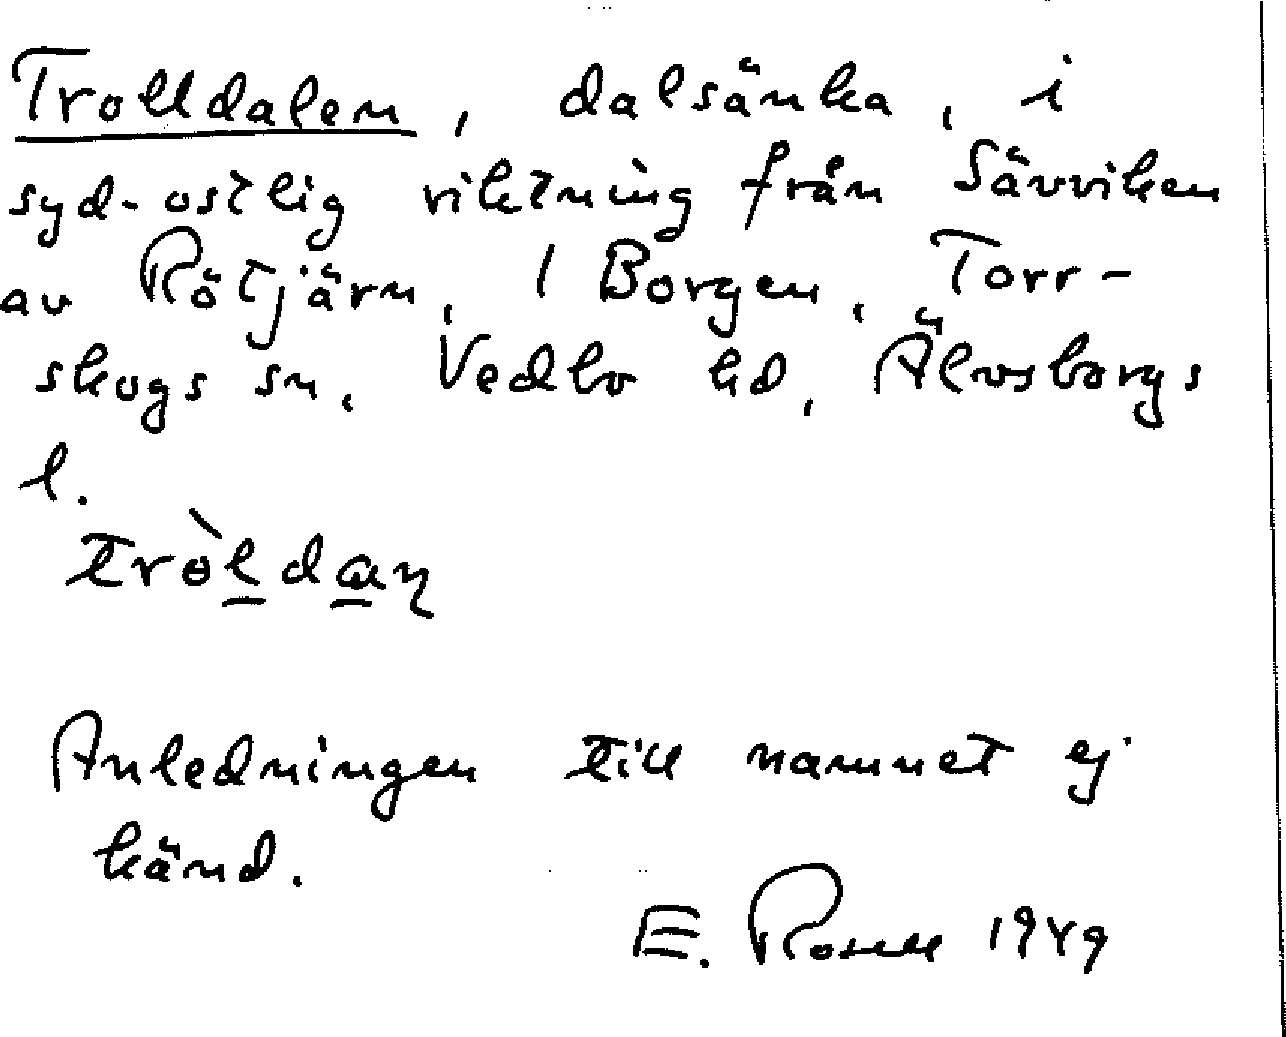 Trolldalen, dalsänka, i
syd-ostlig riktning från Sävviken
av Rötjärn, 1 Borgen, Torr-
skogs sn, Vedbo hd, Älvsborgs
l.
tròldaṉ
Anledningen till namnet ej
känd.
E. Rosell 1949